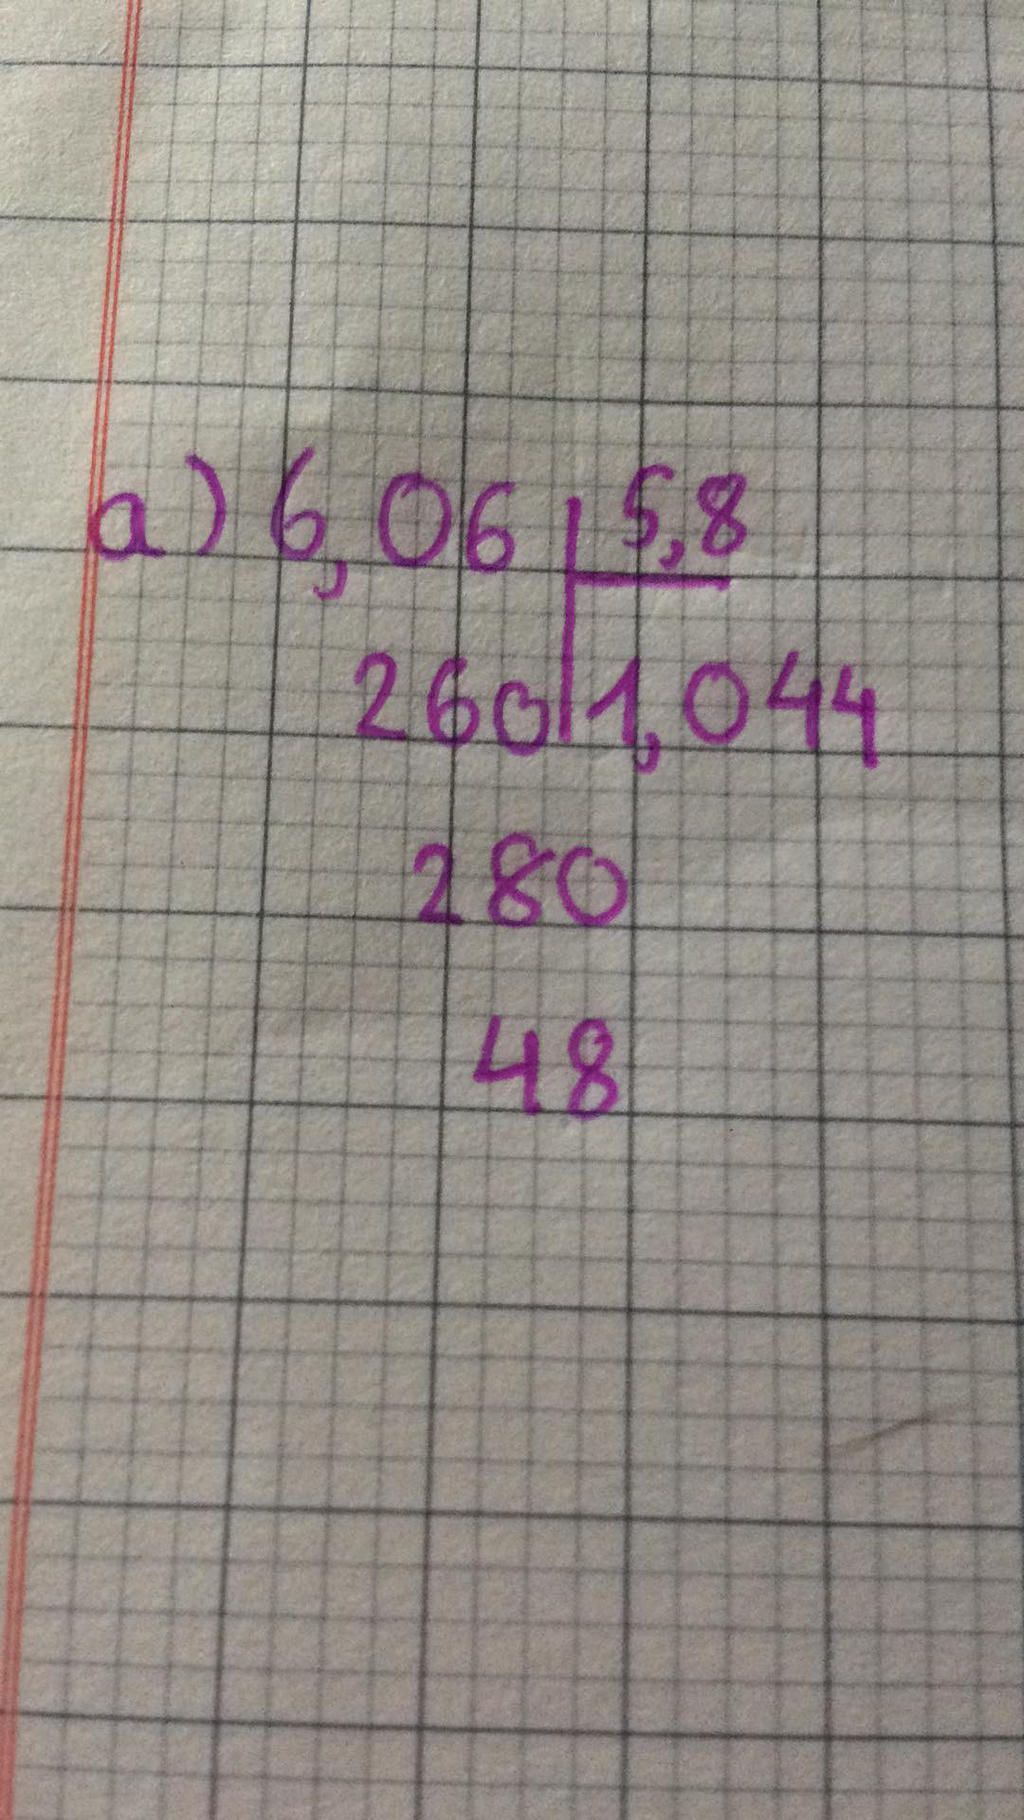 a) 6,06 5,8
260 1,044
280
48